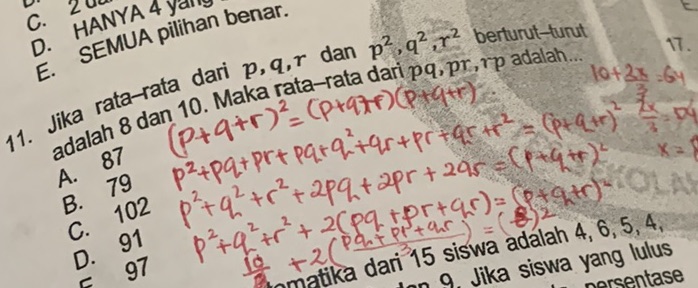 C. 2
D. HANYA 4 yang
E. SEMUA pilihan benar.
11. Jika rata-rata dari p,q,r dan p²,q²,r² berturut-turut
adalah 8 dan 10. Maka rata-rata dari pq,pr,rp adalah...
(p+q+r)² = (p+q+r)(p+q+r)
A. 87
p²+pq+pr+pq+q²+qr+pr+qr+r² = (p+q+r)²
B. 79
p²+q²+r²+2pq+2pr+2qr = (p+q+r)²
C. 102
p²+q²+r²+2(pq+pr+qr) = (p+q+r)²
D. 91
10 + 2(pq+pr+qr)/3 = (8)²
97
10+2x/3=64
2x/3
x=
17.
matika dari 15 siswa adalah 4, 6, 5, 4,
9. Jika siswa yang lulus
persentase